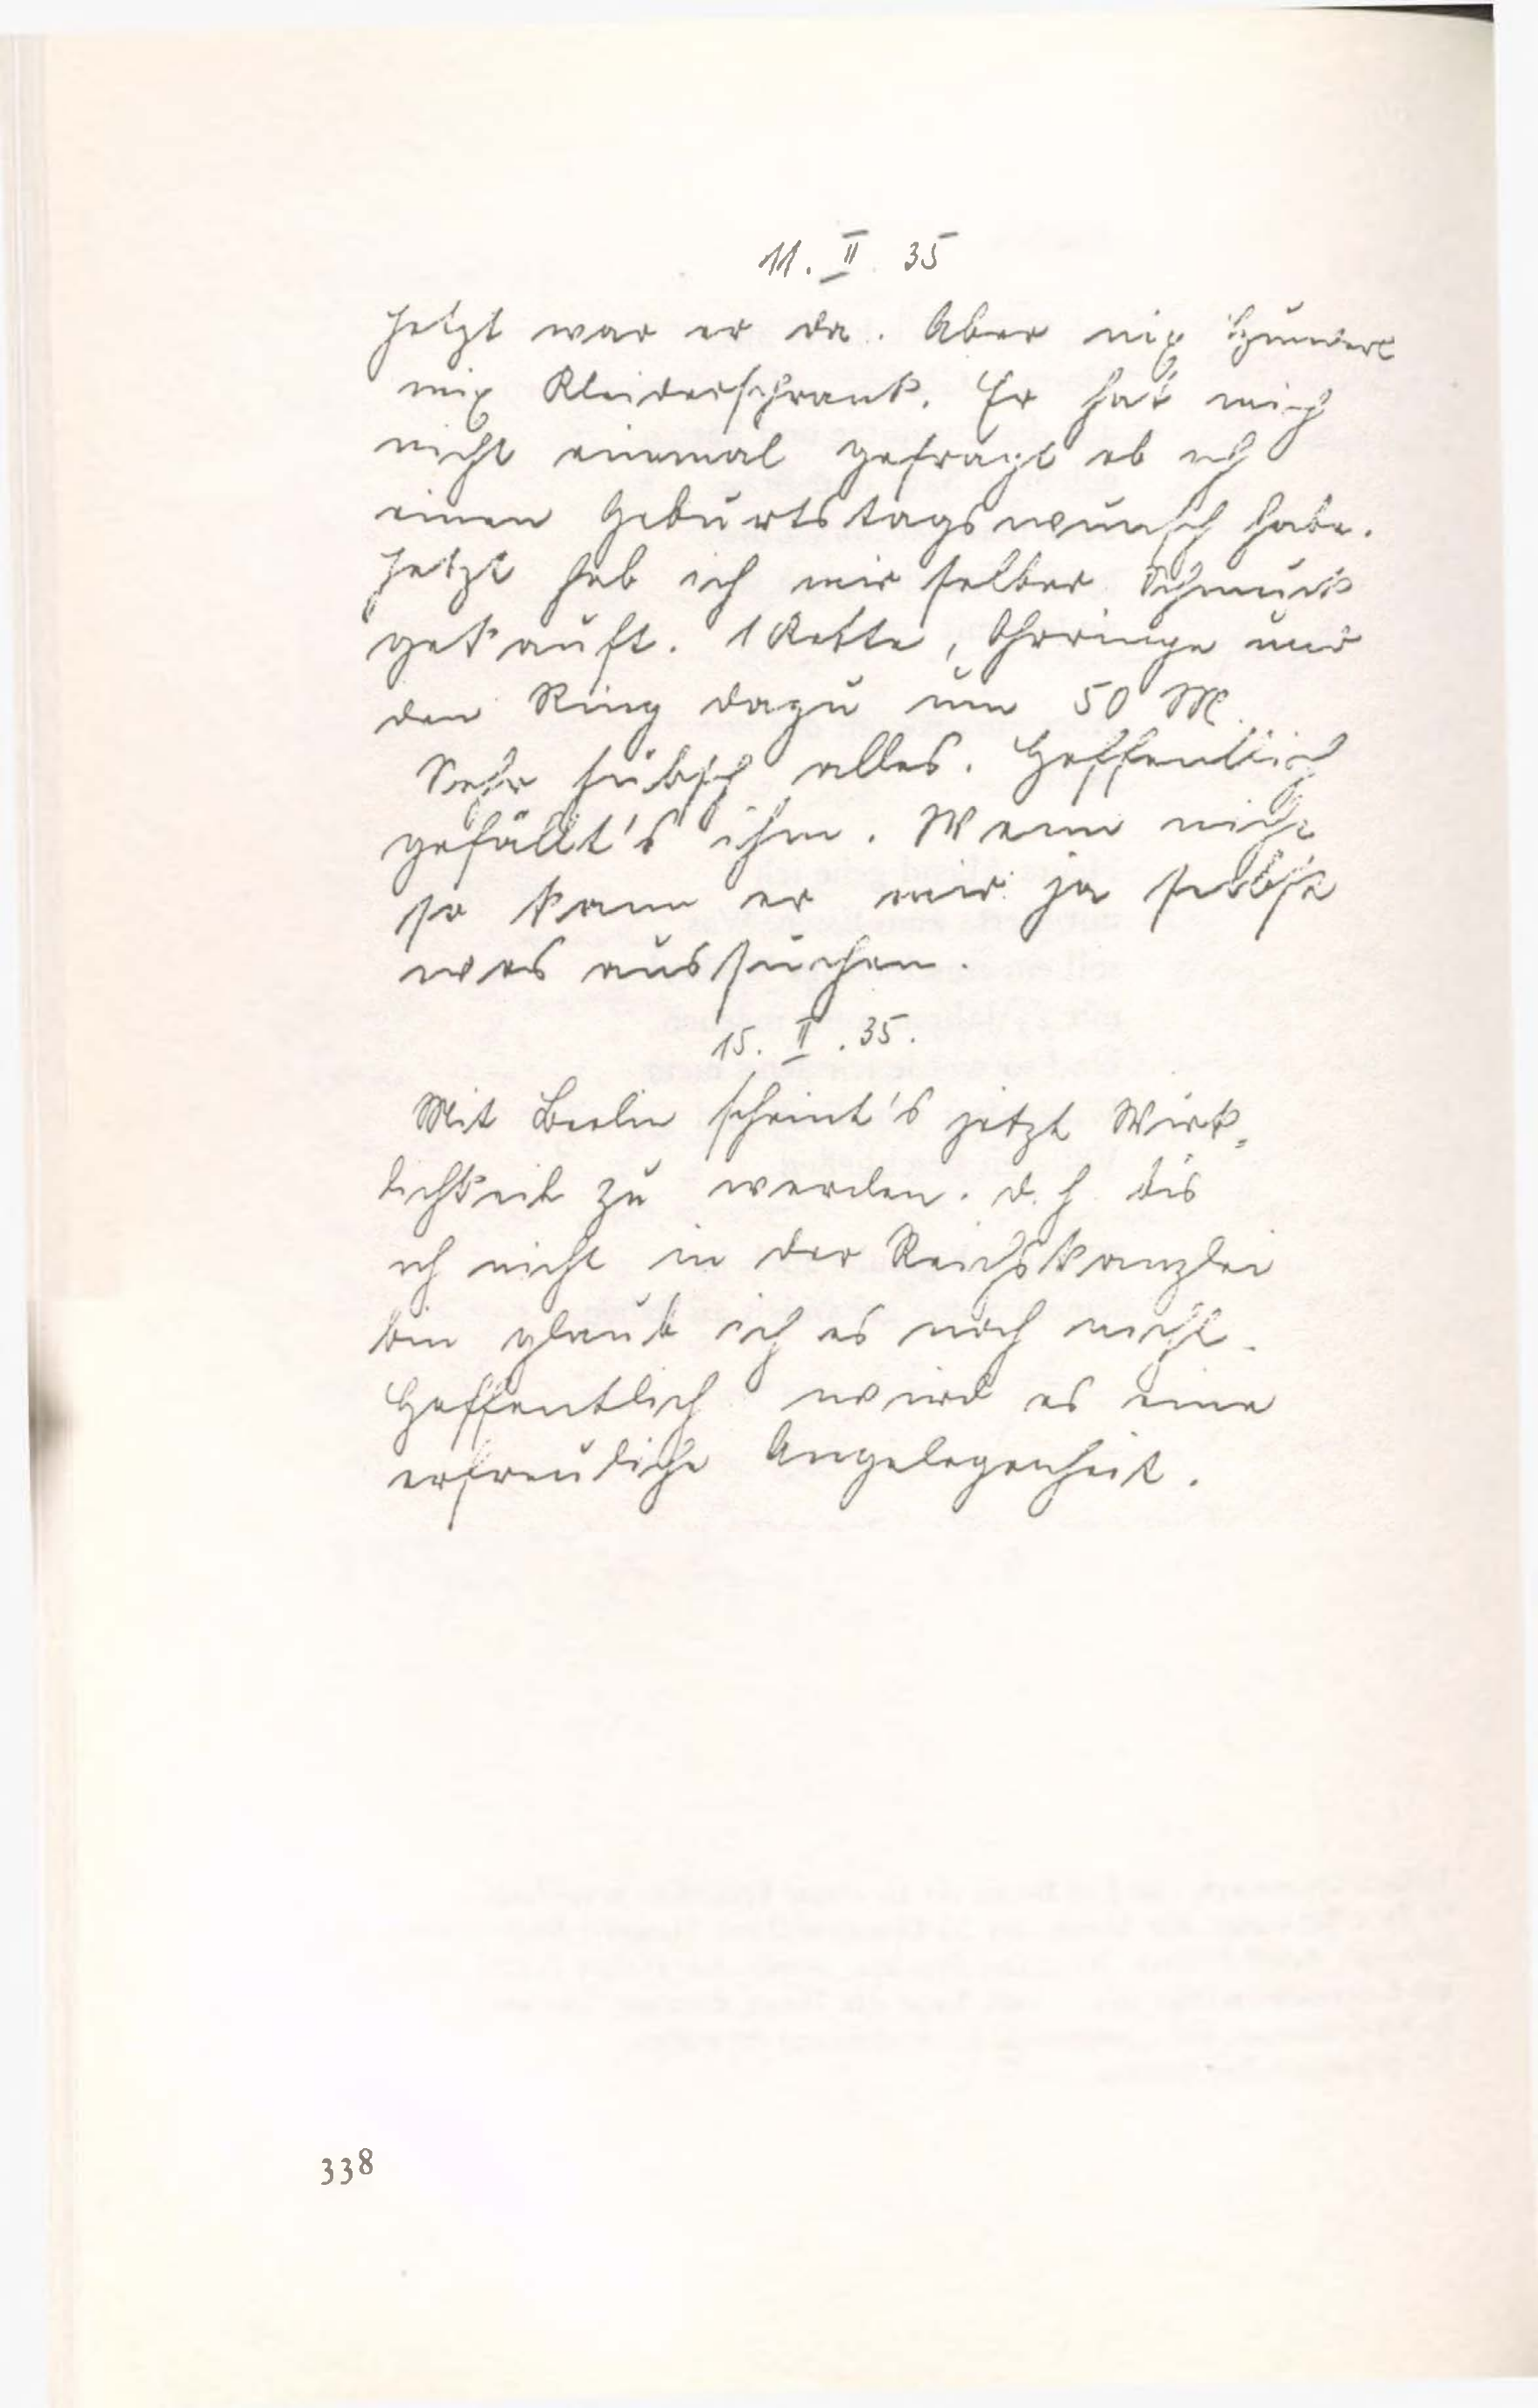 11. II. 35
Jetzt war er da. Aber nix Hunderl
nix Kleiderschrank. Er hat mich
nicht einmal gefragt ob ich
einen Geburtstagswunsch habe.
Jetzt hab ich mir selber Schmuck
gekauft. 1 Kette, Ohrringe und
den Ring dazu um 50 M.
Sehr hübsch alles. Hoffentlich
gefällt's ihm. Wenn nicht
so kann er mir ja selbst
was aussuchen.
15. II. 35.
Mit Berlin scheint's jetzt Wirk=
lichkeit zu werden. d. h. bis
ich nicht in der Reichskanzlei
bin glaub ich es noch nicht.
Hoffentlich wird es eine
erfreuliche Angelegenheit.
338